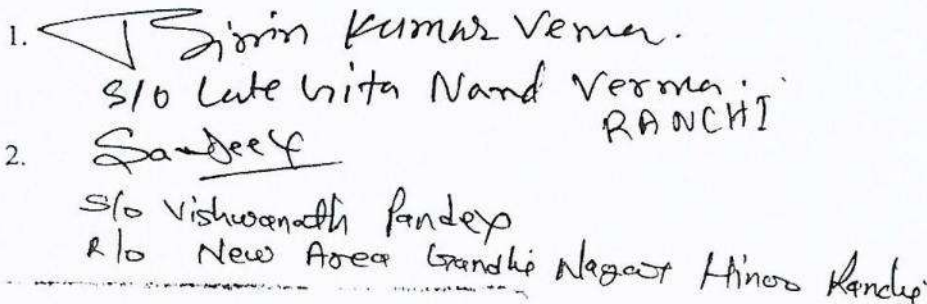 1. Bipin Kumar Verma.
S/o Late Gita Nand Verma.
RANCHI
2. Sandeep
S/o Vishwanath Pandey
R/o New Area Gandhi Nagar Hinoo Ranchi